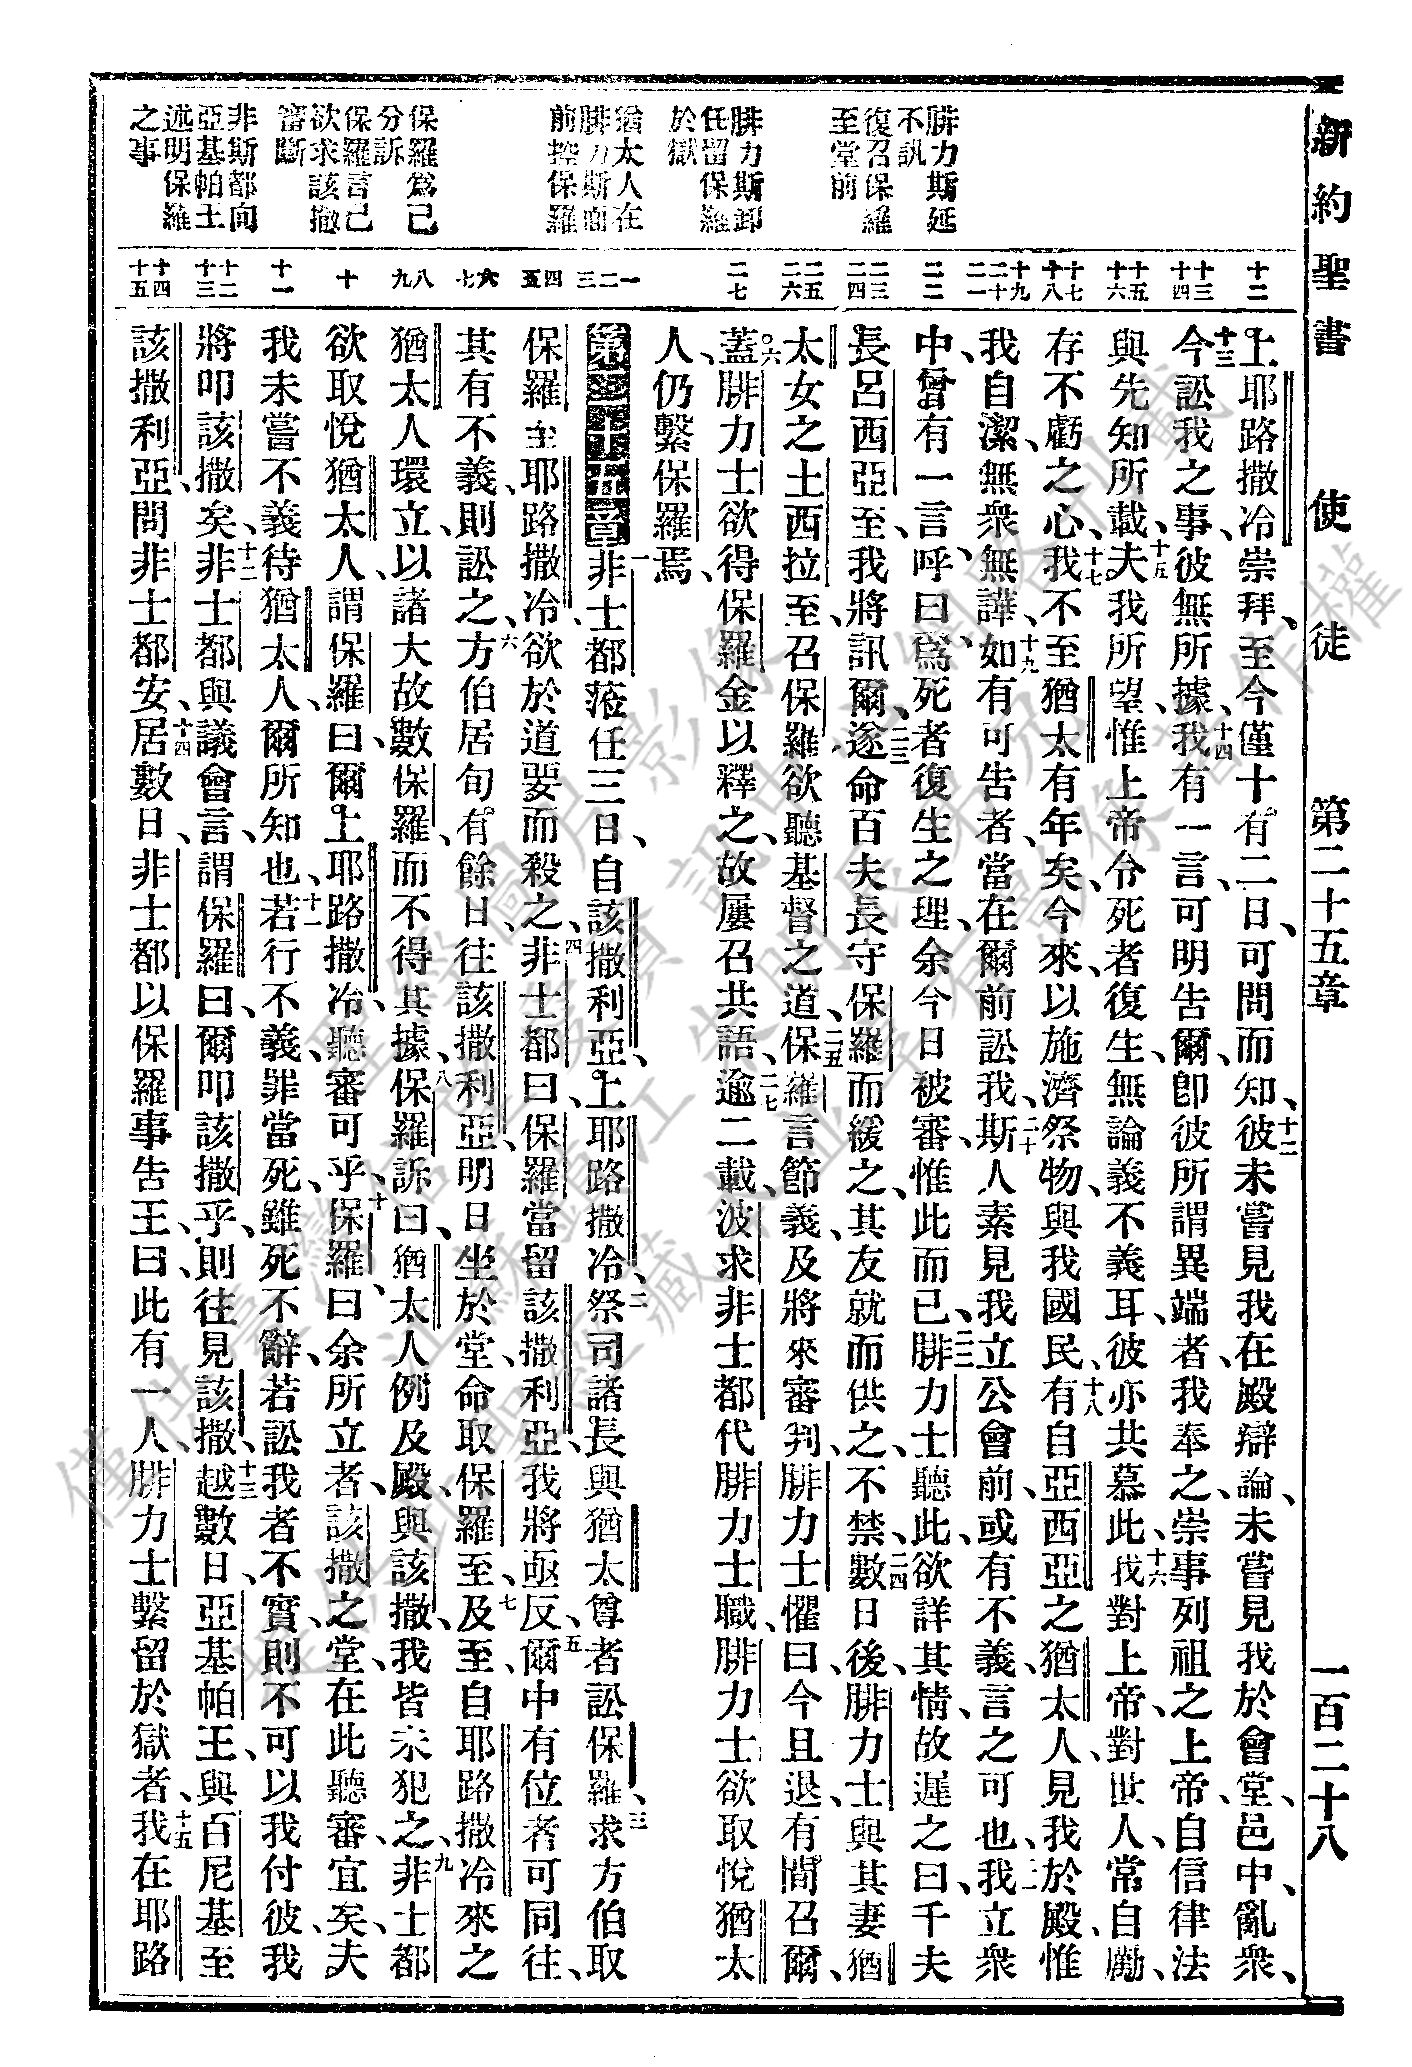 新約聖書　使徒　第二十五章　一百二十八
腓力斯延
不訊
復召保羅
至堂前
腓力斯卸
任留保羅
於獄
猶太人在
腓力斯前
前控保羅
保羅爲己
分訴
保羅言己
欲求該撒
審斷
非斯都向
亞基帕王
述明保羅
之事
十二
十三 十四
十五 十六
十七 十八
十九 二十 二一
二二
二三 二四
二五 二六
二七
一 二 三
四 五
六 七
八 九
十
十一
十二 十三
十四 十五
上耶路撒冷崇拜、至今僅十有二日、可問而知、十二彼未嘗見我在殿辯論、未嘗見我於會堂、邑中、亂衆、
十三今訟我之事、彼無所據、十四我有一言、可明告爾、卽彼所謂異端者、我奉之、崇事列祖之上帝、自信律法
與先知所載、十五夫我所望、惟上帝令死者復生、無論義不義耳、彼亦共慕此、十六我對上帝、對世人、常自勵、
存不虧之心、十七我不至猶太有年矣、今來、以施濟祭物、與我國民、十八有自亞西亞之猶太人、見我於殿、惟
我自潔、無衆無譁、十九如有可告者、當在爾前訟我、二十斯人素見我立公會前、或有不義、言之可也、二一我立衆
中、曾有一言、呼曰、爲死者復生之理、余今日被審、惟此而已、二二腓力士聽此、欲詳其情、故遲之曰、千夫
長呂西亞至、我將訊爾、二三遂命百夫長守保羅而緩之、其友就而供之、不禁、二四數日後、腓力士與其妻猶
太女之土西拉至、召保羅、欲聽基督之道、二五保羅言節義、及將來審判、腓力士懼曰、今且退、有間召爾、
二六蓋腓力士欲得保羅金以釋之、故屢召共語、二七逾二載、波求非士都代腓力士職、腓力士欲取悅猶太
人、仍繫保羅焉、
第二十五章 一非士都蒞任三日、自該撒利亞、上耶路撒冷、二祭司諸長、與猶太尊者訟保羅、三求方伯取
保羅至耶路撒冷、欲於道要而殺之、四非士都曰、保羅當留該撒利亞、我將亟反、五爾中有位者可同往、
其有不義、則訟之、六方伯居旬有餘日、往該撒利亞、明日坐於堂、命取保羅至、七及至、自耶路撒冷來之
猶太人環立、以諸大故數保羅、而不得其據、八保羅訴曰、猶太人例及殿、與該撒、我皆未犯之、九非士都
欲取悅猶太人、謂保羅曰、爾上耶路撒冷、聽審可乎、十保羅曰、余所立者、該撒之堂、在此聽審、宜矣、夫
我未嘗不義待猶太人、爾所知也、十一若行不義、罪當死、雖死不辭、若訟我者不實、則不可以我付彼、我
將叩該撒矣、十二非士都與議會言、謂保羅曰、爾叩該撒乎、則往見該撒、十三越數日、亞基帕王、與百尼基至
該撒利亞、問非士都安、十四居數日、非士都以保羅事告王、曰、此有一人、腓力士繫留於獄者、十五我在耶路